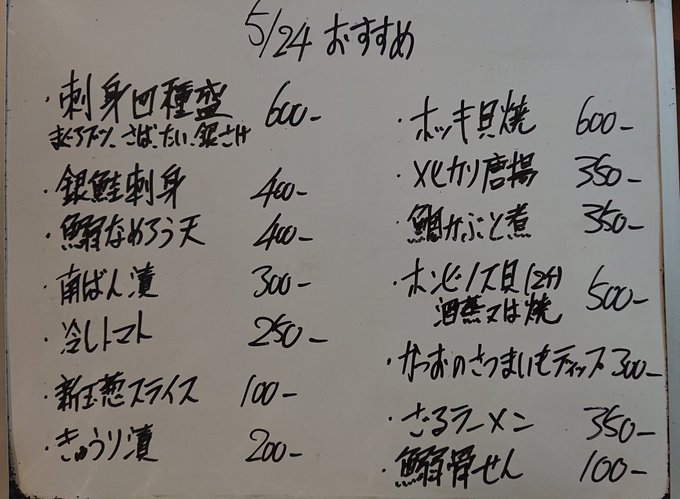 5/24 おすすめ
・刺身四種盛 600-
まぐろブツ、さば、たい、銀さけ
・銀鮭刺身 400-
・鰯なめろう天 400-
・南ばん漬 300-
・冷しトマト 250-
・新玉葱スライス 100-
・きゅうり漬 200-
・ホッキ貝焼 600-
・メヒカリ唐揚 350-
・鯛かぶと煮 350-
・ホンビノス貝(2ケ) 500-
酒蒸又は焼
・かつおのさつまいもディップ 300-
・ざるラーメン 350-
・鰯骨せん 100-